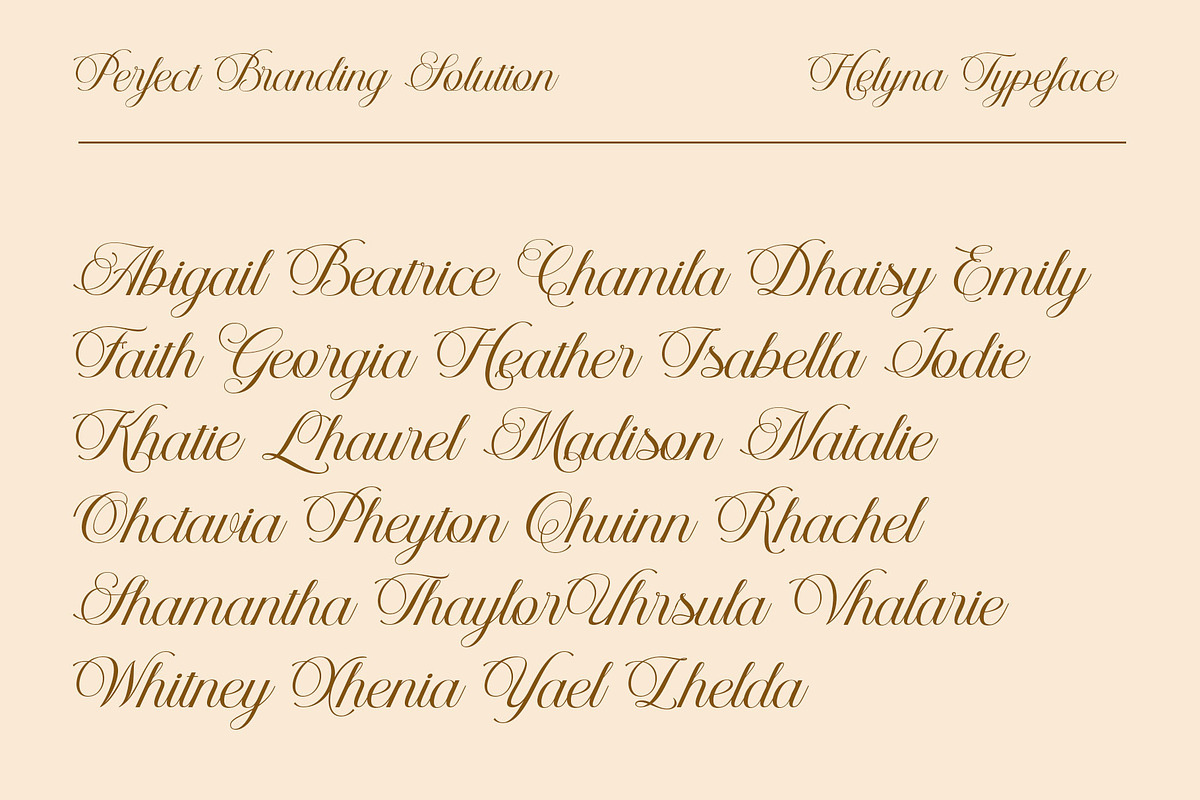 Perfect Branding Solution Helyna Typeface
Abigail Beatrice Chamila Dhaisy Emily
Faith Georgia Heather Isabella Jodie
Khatie Lhaurel Madison Natalie
Ohctavia Pheyton Qhuinn Rhachel
Shamantha Thaylor Uhrsula Vhalarie
Whitney Xhenia Yael Zhelda